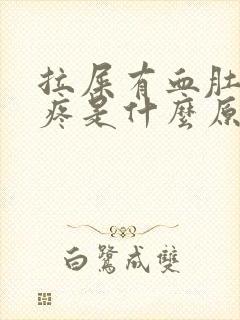 拉屎有血肚
疼是什麼原
白鷺成雙